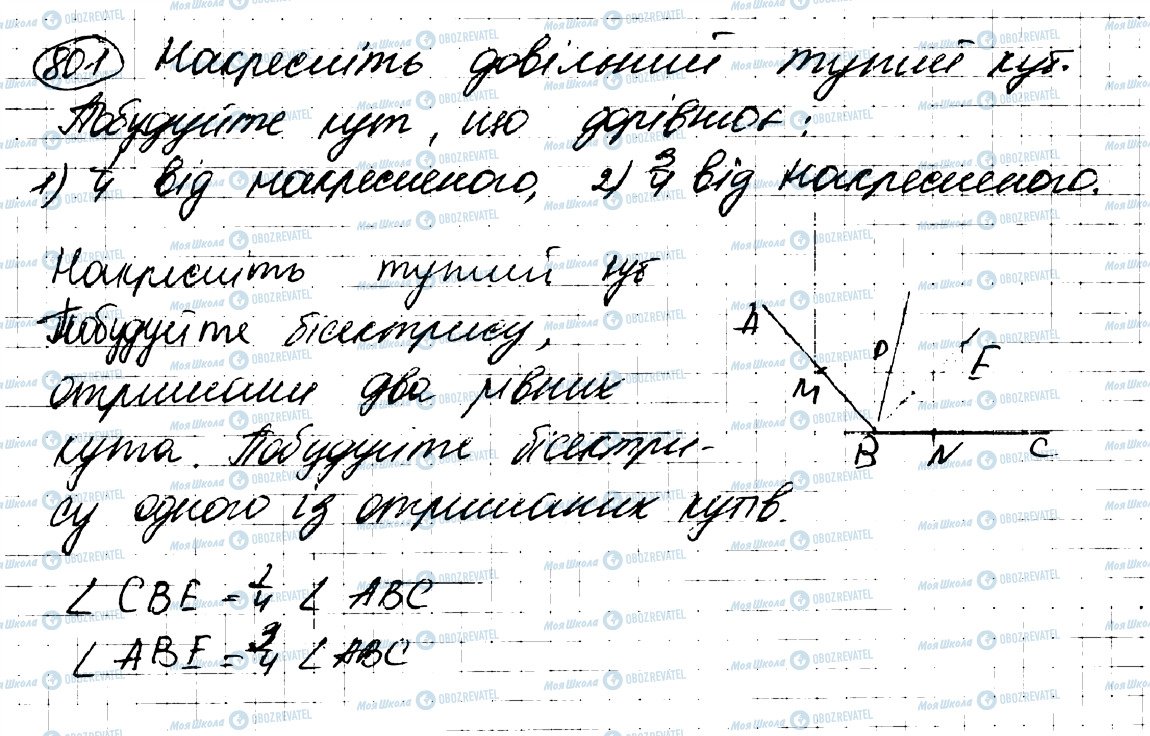 801 Накресліть довільний тупий кут.
Побудуйте кут, що дорівнює:
1) 1/4 від накресленого, 2) 3/4 від накресленого.
Накресліть тупий кут
Побудуйте бісектрису,
отримали два рівних
кута. Побудуйте бісектри-
су одного із отриманих кутів.
A
D
E
M
B N C
∠ CBE = 1/4 ∠ ABC
∠ ABE = 3/4 ∠ ABC